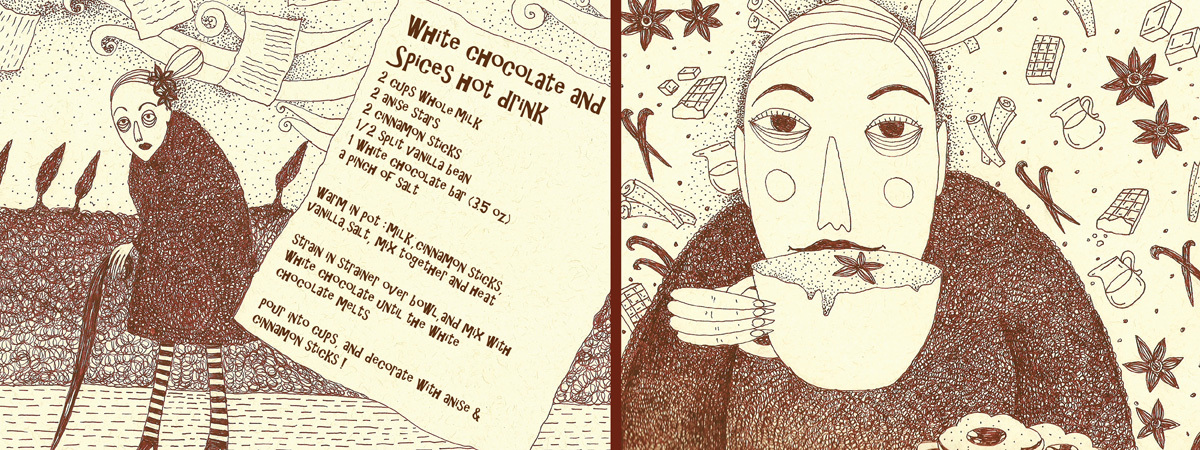 White chocolate and
Spices hot drink
2 cups whole milk
2 anise stars
2 cinnamon sticks
1/2 split vanilla bean
1 white chocolate bar (3.5 oz)
a pinch of salt
Warm in pot :milk, cinnamon sticks
vanilla, salt, mix together and heat
Strain in strainer over bowl, and mix with
white chocolate until the white
chocolate melts
pour into cups, and decorate with anise &
cinnamon sticks !